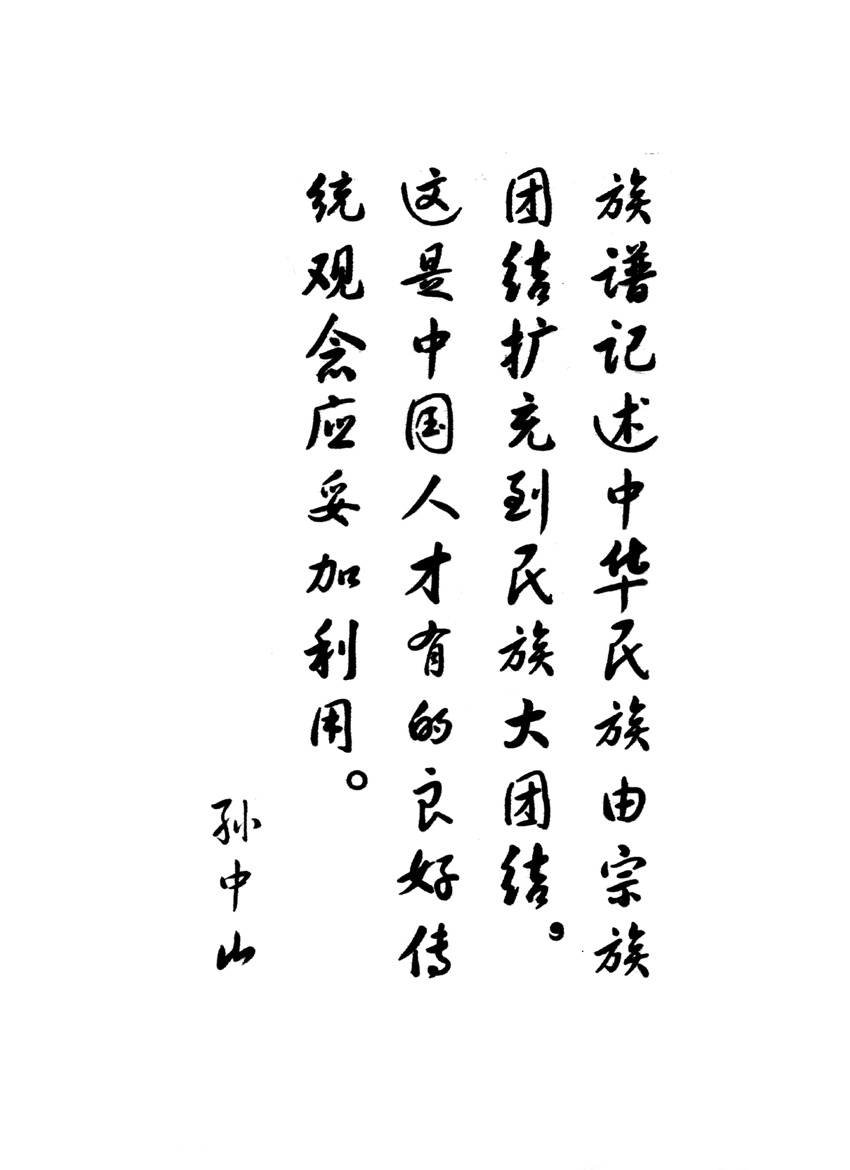 族谱记述中华民族由宗族
团结扩充到民族大团结，
这是中国人才有的良好传
统观念应妥加利用。
孙中山